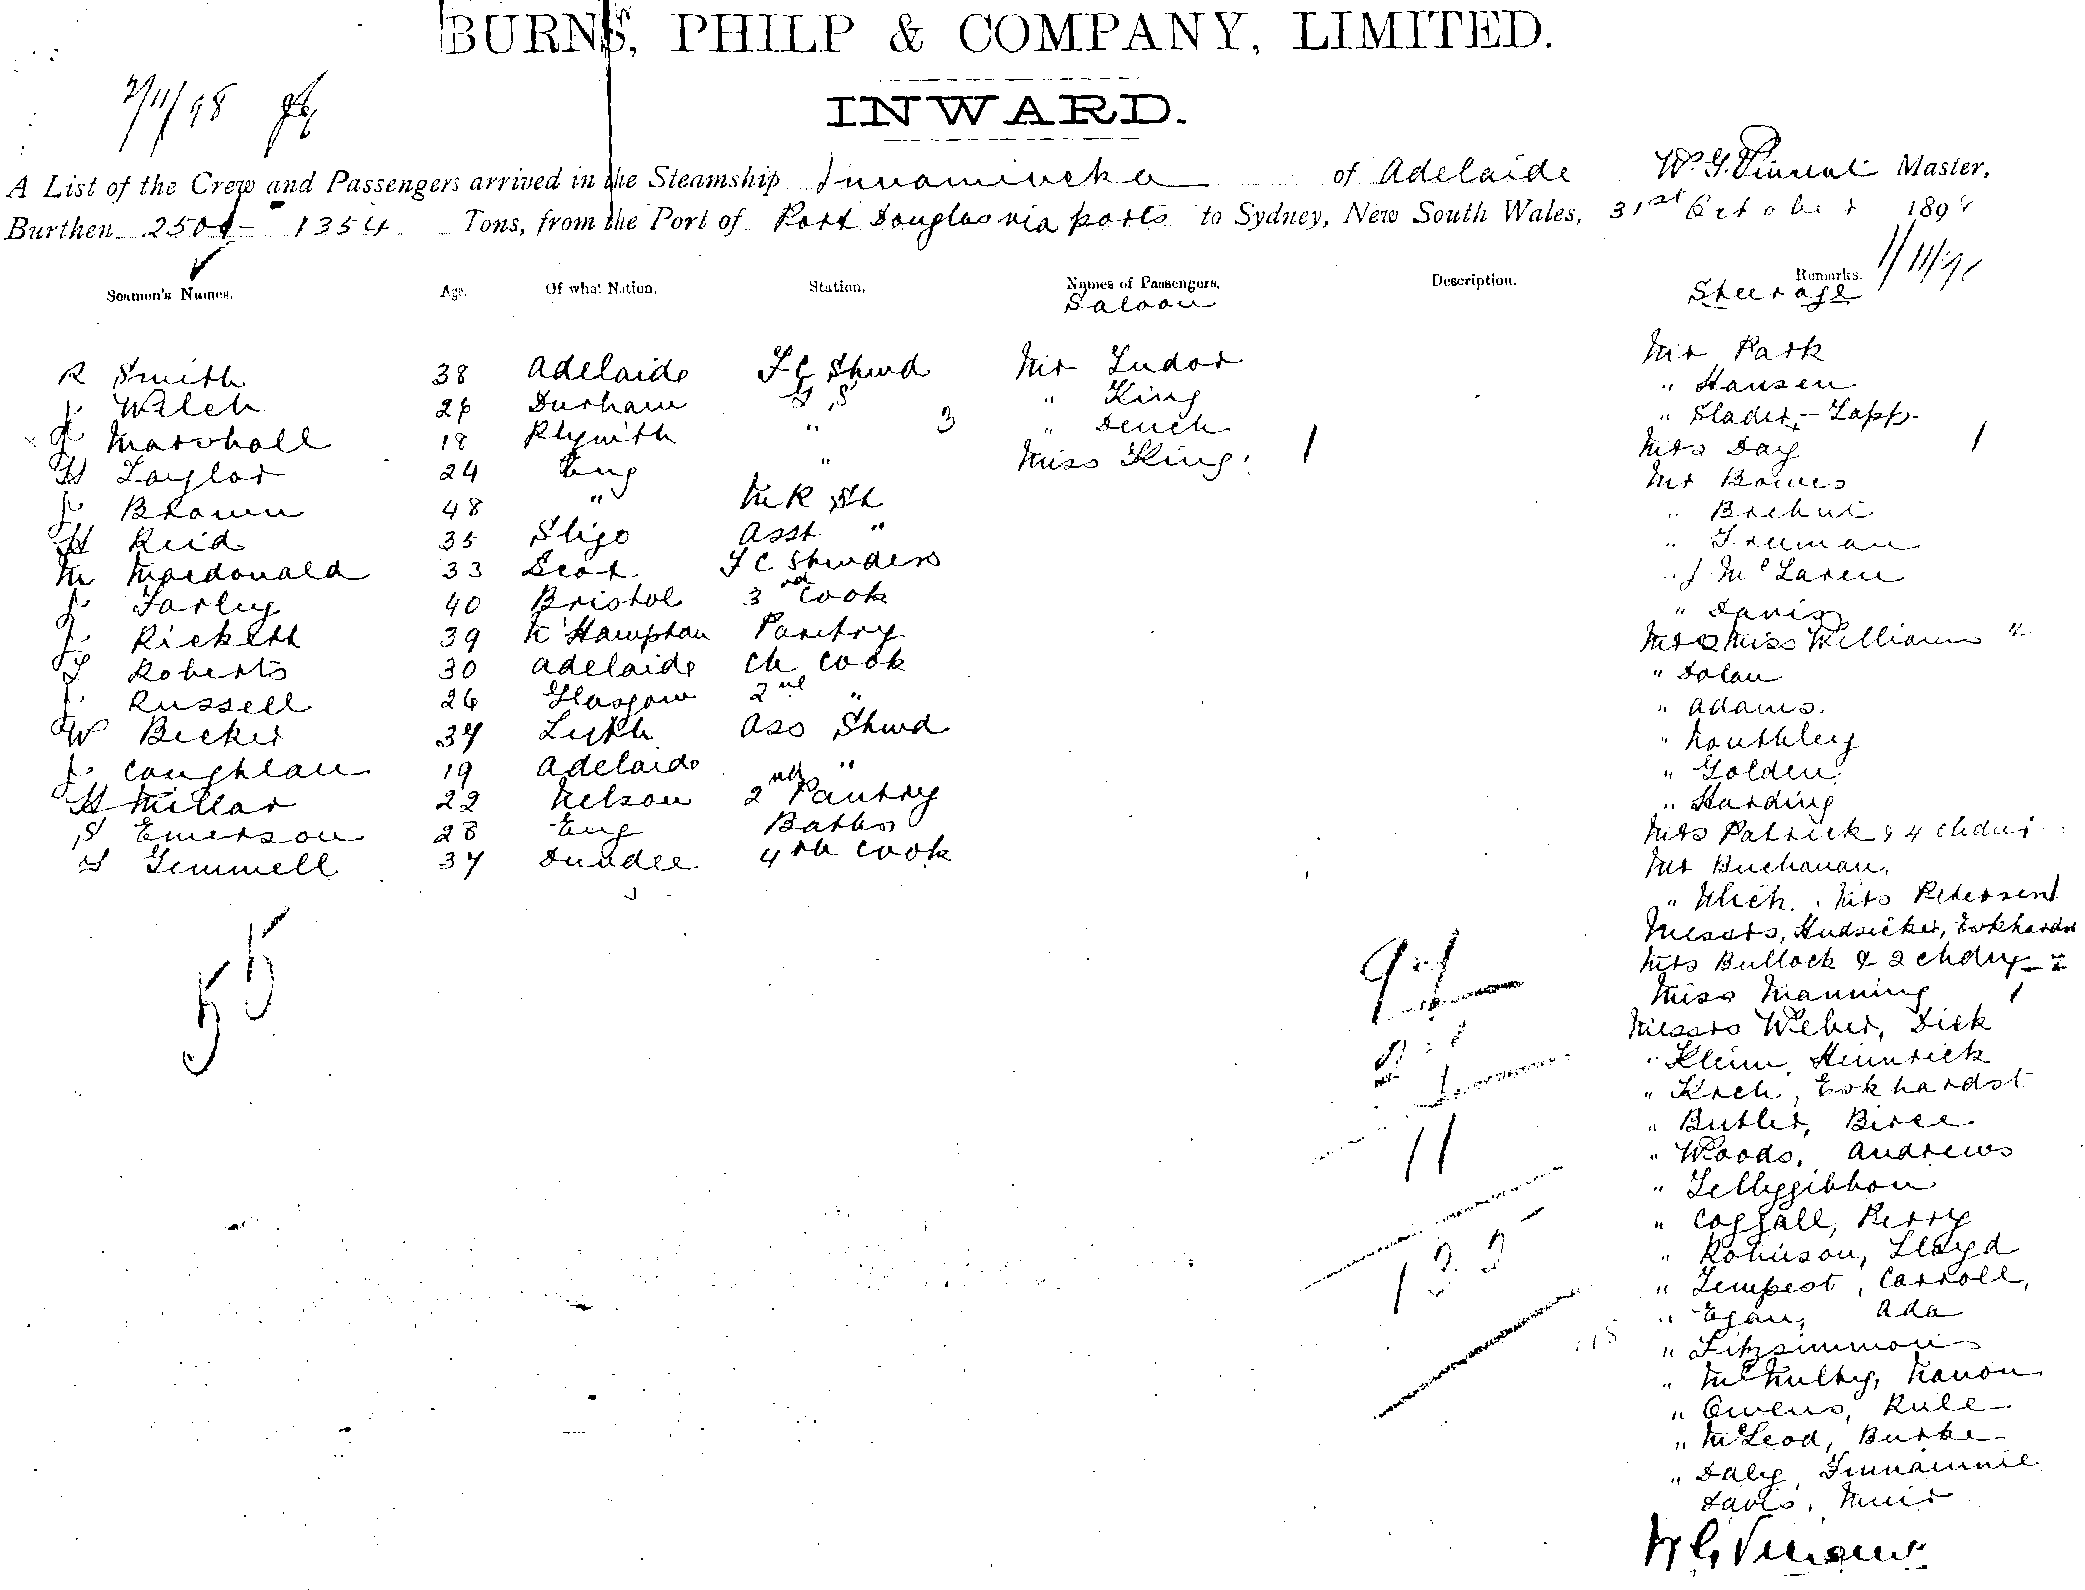 BURNS, PHILP & COMPANY, LIMITED.
INWARD.
2/11/98
A List of the Crew and Passengers arrived in the Steamship Innamincka of Adelaide W. G. Vincent Master,
Burthen 2500 - 1354 Tons, from the Port of Port Douglas via ports to Sydney, New South Wales, 31st October 1898
1/11/98
Seamen's Names. Age. Of what Nation. Station. Names of Passengers. Description. Remarks.
Saloon Steerage
R Smith 38 Adelaide F C Stwd Mr Tudor Mr Park
J. Welch 26 Durham G S " King " Hansen
J Marshall 18 Plymth " 3 " Dench " Slader - Lapp.
H Taylor 24 Eng " Miss King. 1 Mrs Day 1
J. Brown 48 " M R St Mr Bowes
H Reid 35 Sligo Asst " " Brehui
M Macdonald 33 Scot. F C Stwdess " Freeman
J. Farley 40 Bristol 3rd Cook " J McLaren
J. Rickett 39 N'Hampton Pantry " Davis
T Roberts 30 Adelaide Ch Cook Mr & Miss Williams "
J. Russell 26 Glasgow 2nd " " Dolan
W Becker 34 Leith Ass Stwd " Adams.
J. Coughlan 19 Adelaide " " Routhley
H Millar 22 Nelson 2nd Pantry " Golden
S Emerson 28 Eng Baths " Harding
G Gemmell 37 Dundee 4th Cook Mrs Patrick & 4 chdn
Mr Buchanan,
" Ulich. Mrs Petersen 1
Messrs, Hudsicker, Eckhardt
Mrs Bullock & 2 chdn - 2
Miss Manning 1
Messrs Weber, Dick
" Kleim, Heinrick
" Kreh, Eckhardst
" Butler, Birce
" Woods, Andrews
" Tellygibbon
" Coggall, Perry
" Robinson, Lloyd
" Tempest, Carroll,
" Egan, Ada
" Fitzsimmon
" McNulty, Nanon
" Owens, Rule
" McLeod, Burke
" Daly, Finnamie
Davis, Muir
55
94
11
W G Vincent